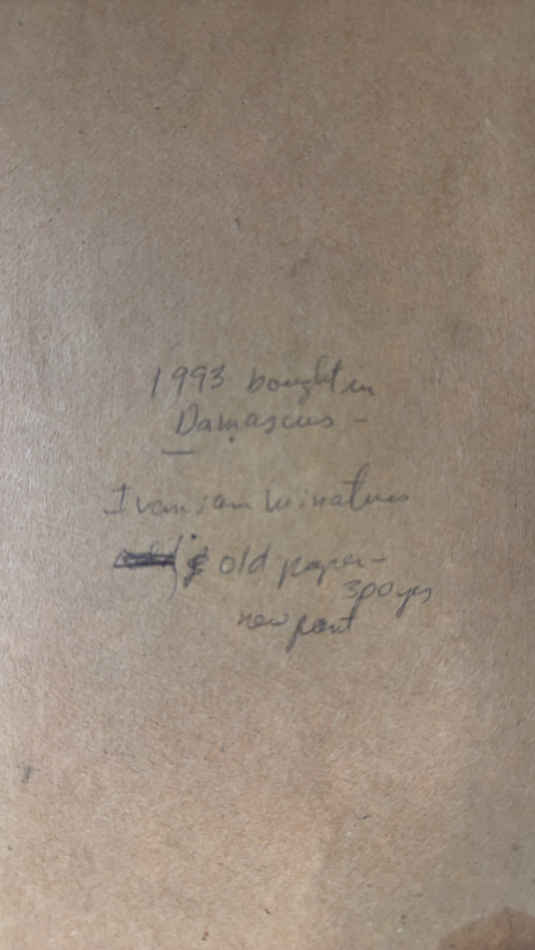 1993 bought in
Damascus -
Iranian miniatures
old paper -
300 yrs
new paint